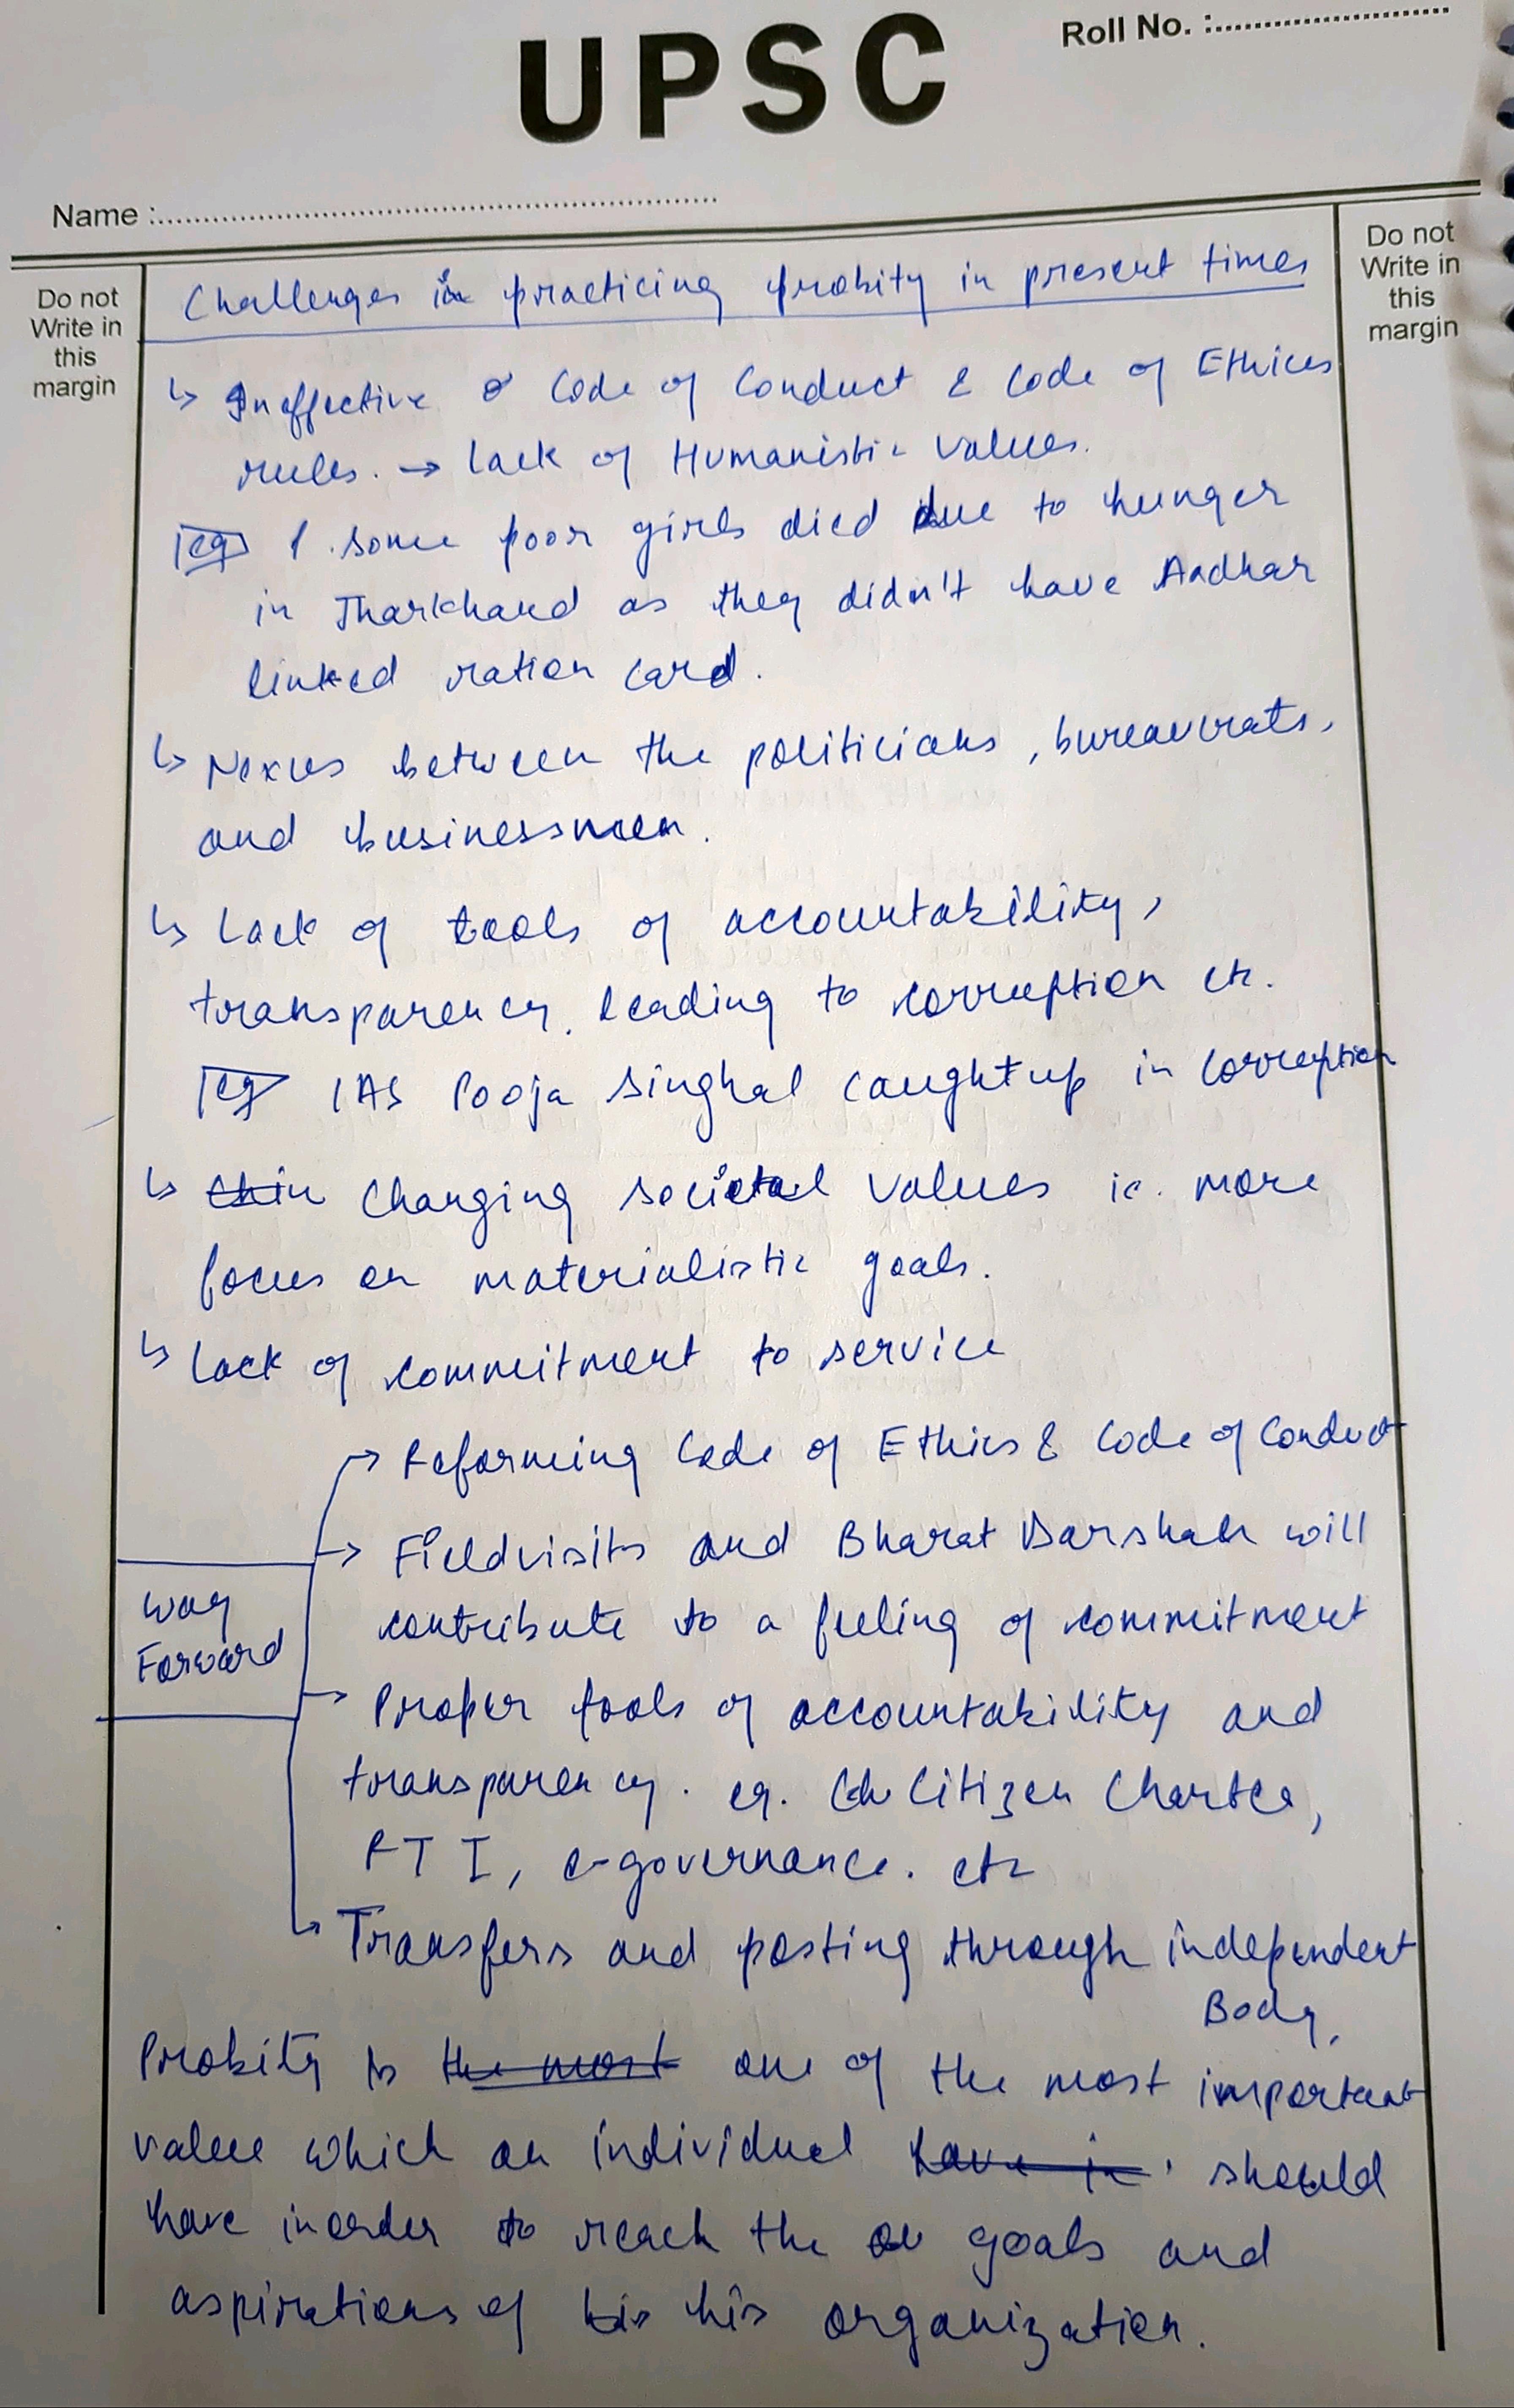 UPSC
Roll No. :
Name :
Do not
Write in
this
margin
Do not
Write in
this
margin
Challenges in practicing probity in present times
↳ Ineffective Code of Conduct & Code of Ethics
rules. → Lack of Humanistic values.
eg 1. some poor girls died due to hunger
in Jharkhand as they didn't have Aadhar
linked ration card.
↳ Nexus between the politicians, bureaucrats,
and businessmen.
↳ Lack of tools of accountability,
transparency. leading to corruption etc.
eg IAS Pooja Singhal caughtup in corruption
↳ Changing societal values ie. more
focus on materialistic goals.
↳ Lack of commitment to service
Way
Forward
→ Reforming Code of Ethics & Code of Conduct
→ Fieldvisits and Bharat Darshan will
contribute to a feeling of commitment
→ Proper tools of accountability and
transparency. eg. Citizen Charter,
RTI, e-governance. etc
↳ Transfers and posting through independent
Body.
Probity is the most one of the most important
value which an individual have in should
have inorder to reach the goals and
aspirations of his organization.